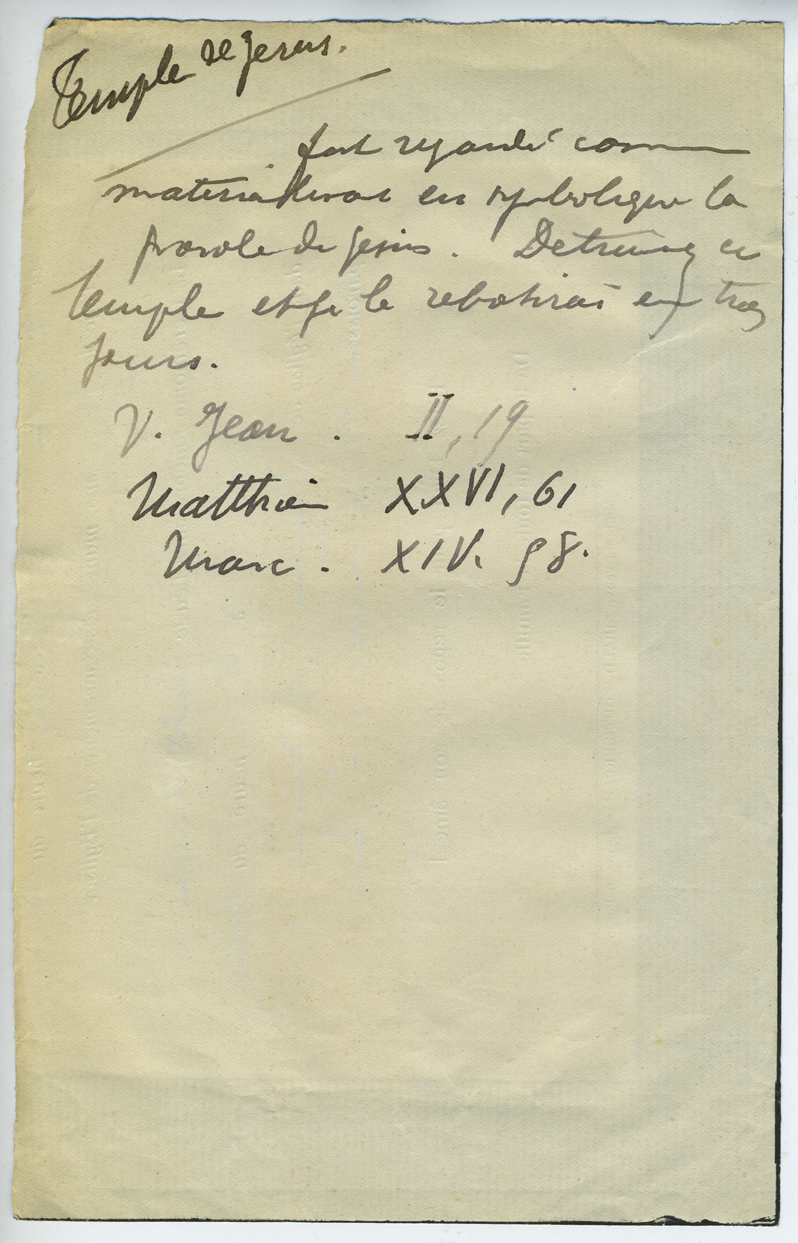 Temple de Jesus.
fut regardé comme
materialisat en symbolique la
parole de Jesus. Detruisez ce
temple et je le rebatirai en trois
jours.
V. Jean. II, 19
Matthieu XXVI, 61
Marc. XIV. 58.